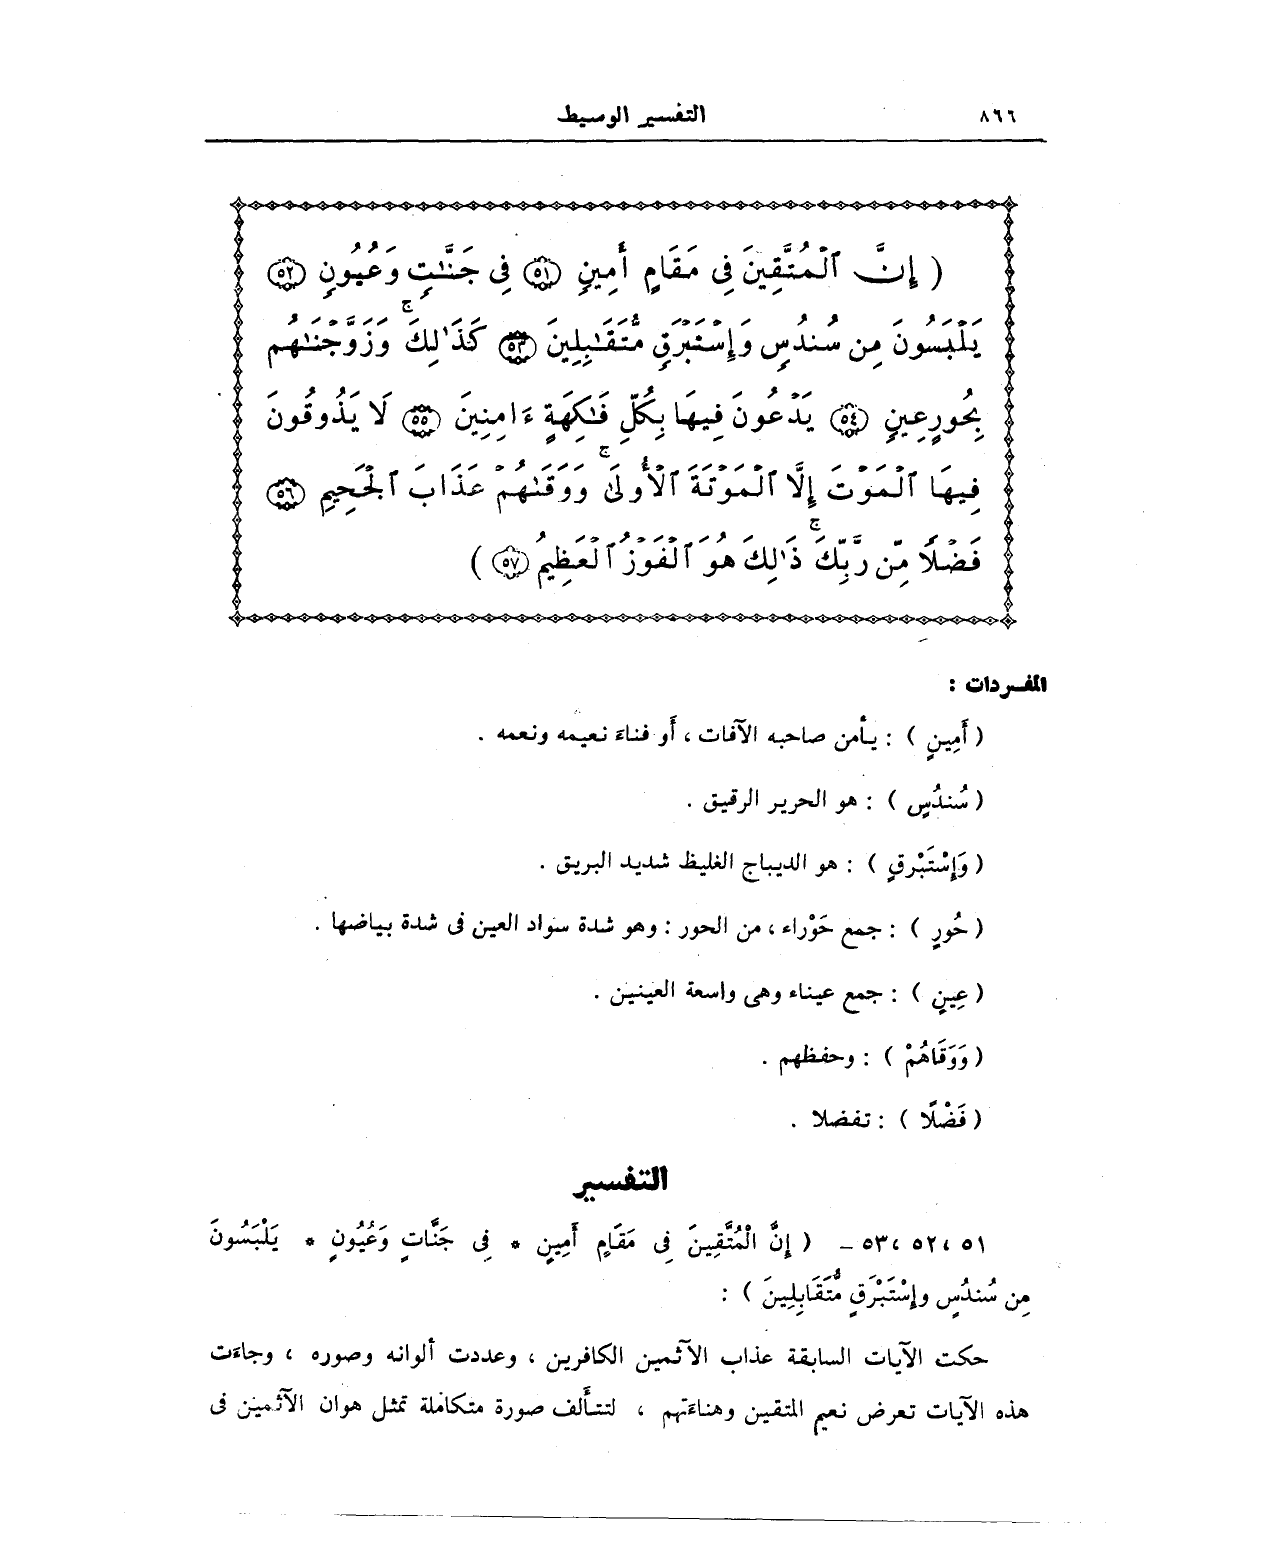 ٨٦٦
التفسير الوسيط
( إِنَّ ٱلْمُتَّقِينَ فِى مَقَامٍ أَمِينٍ ٥١ فِى جَنَّٰتٍ وَعُيُونٍ ٥٢
يَلْبَسُونَ مِن سُندُسٍ وَإِسْتَبْرَقٍ مُّتَقَٰبِلِينَ ٥٣ كَذَٰلِكَ ۚ وَزَوَّجْنَٰهُم
بِحُورٍ عِينٍ ٥٤ يَدْعُونَ فِيهَا بِكُلِّ فَٰكِهَةٍ ءَامِنِينَ ٥٥ لَا يَذُوقُونَ
فِيهَا ٱلْمَوْتَ إِلَّا ٱلْمَوْتَةَ ٱلْأُولَىٰ ۚ وَوَقَىٰهُمْ عَذَابَ ٱلْجَحِيمِ ٥٦
فَضْلًا مِّن رَّبِّكَ ۚ ذَٰلِكَ هُوَ ٱلْفَوْزُ ٱلْعَظِيمُ ٥٧ )
المفـردات :
( أَمِينٍ ) : يـأمن صاحبه الآفات ، أو فناءَ نعيمه ونعمه .
( سُندُسٍ ) : هو الحرير الرقيق .
( وَإِسْتَبْرقٍ ) : هو الديباج الغليظ شديد البريق .
( حُورٍ ) : جمع حَوْراء ، من الحور : وهو شدة سواد العين فى شدة بياضها .
( عِينٍ ) : جمع عيناء وهى واسعة العينين .
( وَوَقَاهُمْ ) : وحفظهم .
( فَضْلًا ) : تفضلا .
التفسير
٥١ ، ٥٢ ، ٥٣ – ( إِنَّ الْمُتَّقِينَ فِى مَقَامٍ أَمِينٍ * فِى جَنَّاتٍ وَعُيُونٍ * يَلْبَسُونَ
مِن سُندُسٍ وإِسْتَبْرَقٍ مُّتَقَابِلِينَ ) :
حكت الآيات السابقة عذاب الآثمين الكافرين ، وعددت ألوانه وصوره ، وجاءَت
هذه الآيات تعرض نعيم المتقين وهناءَتهم ، لتتـألف صورة متكاملة تمثل هوان الآثمين فى